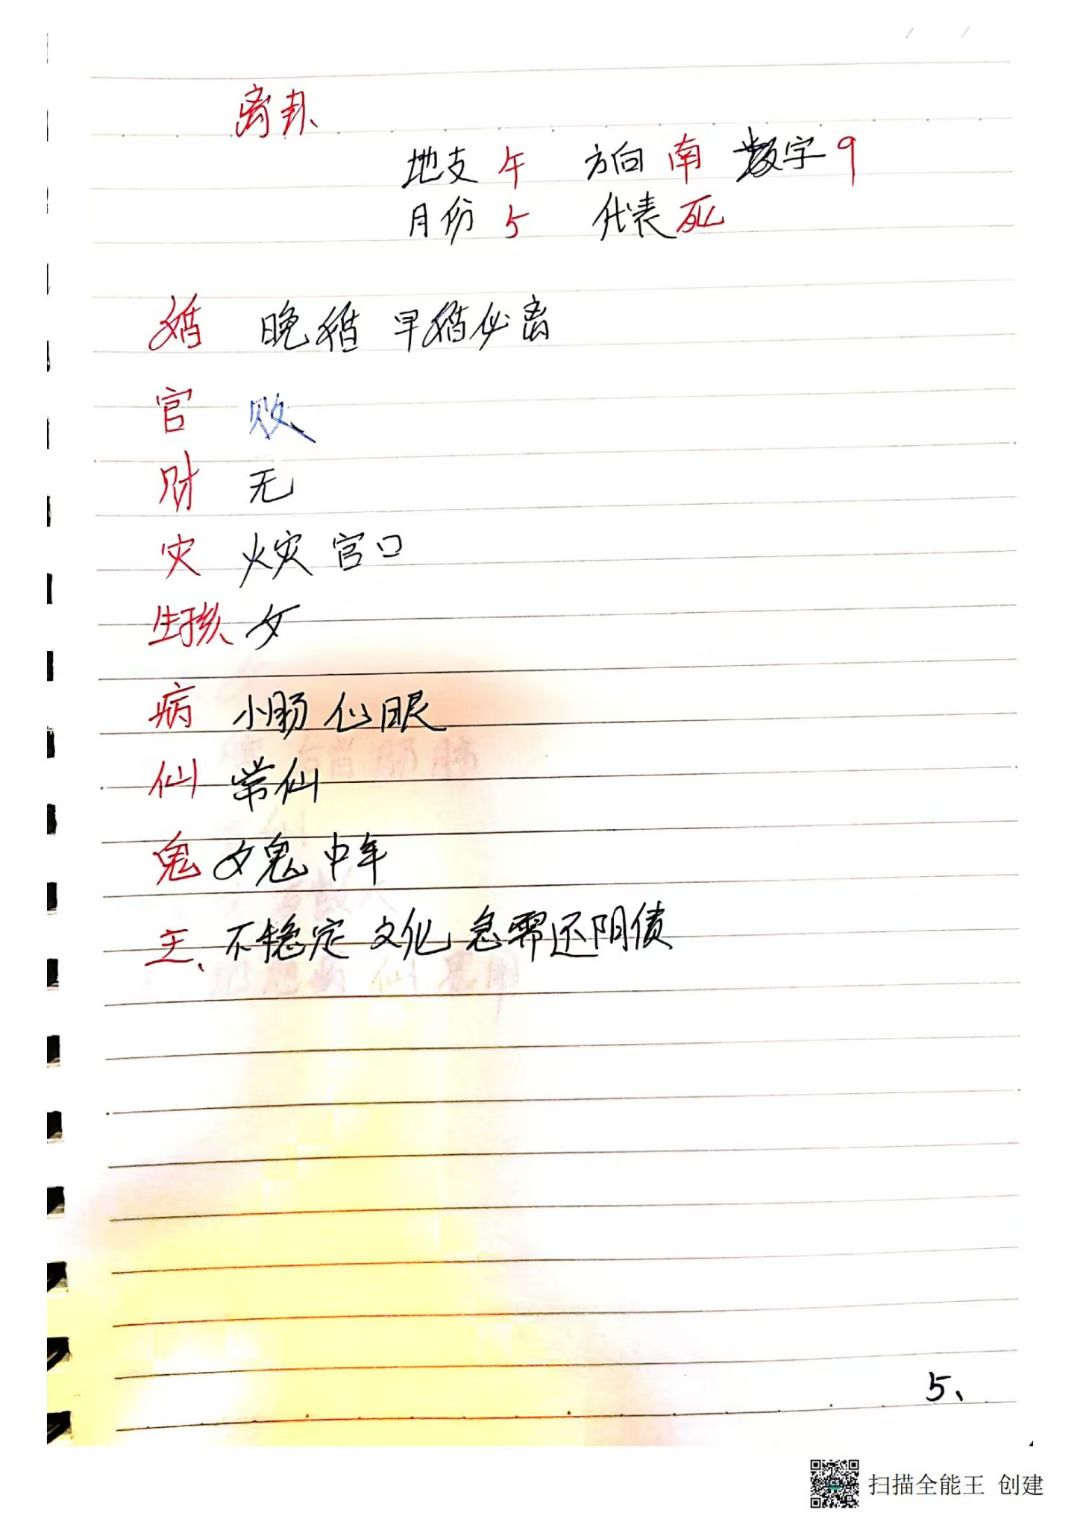 离卦
地支 午 方向 南 数字 9
月份 5 代表 死
婚 晚婚 早婚必离
官 败
财 无
灾 火灾 官口
生孩 女
病 小肠 心眼
仙 常仙
鬼 女鬼 中年
主、不稳定 文化 急需还阴债
5、
扫描全能王 创建